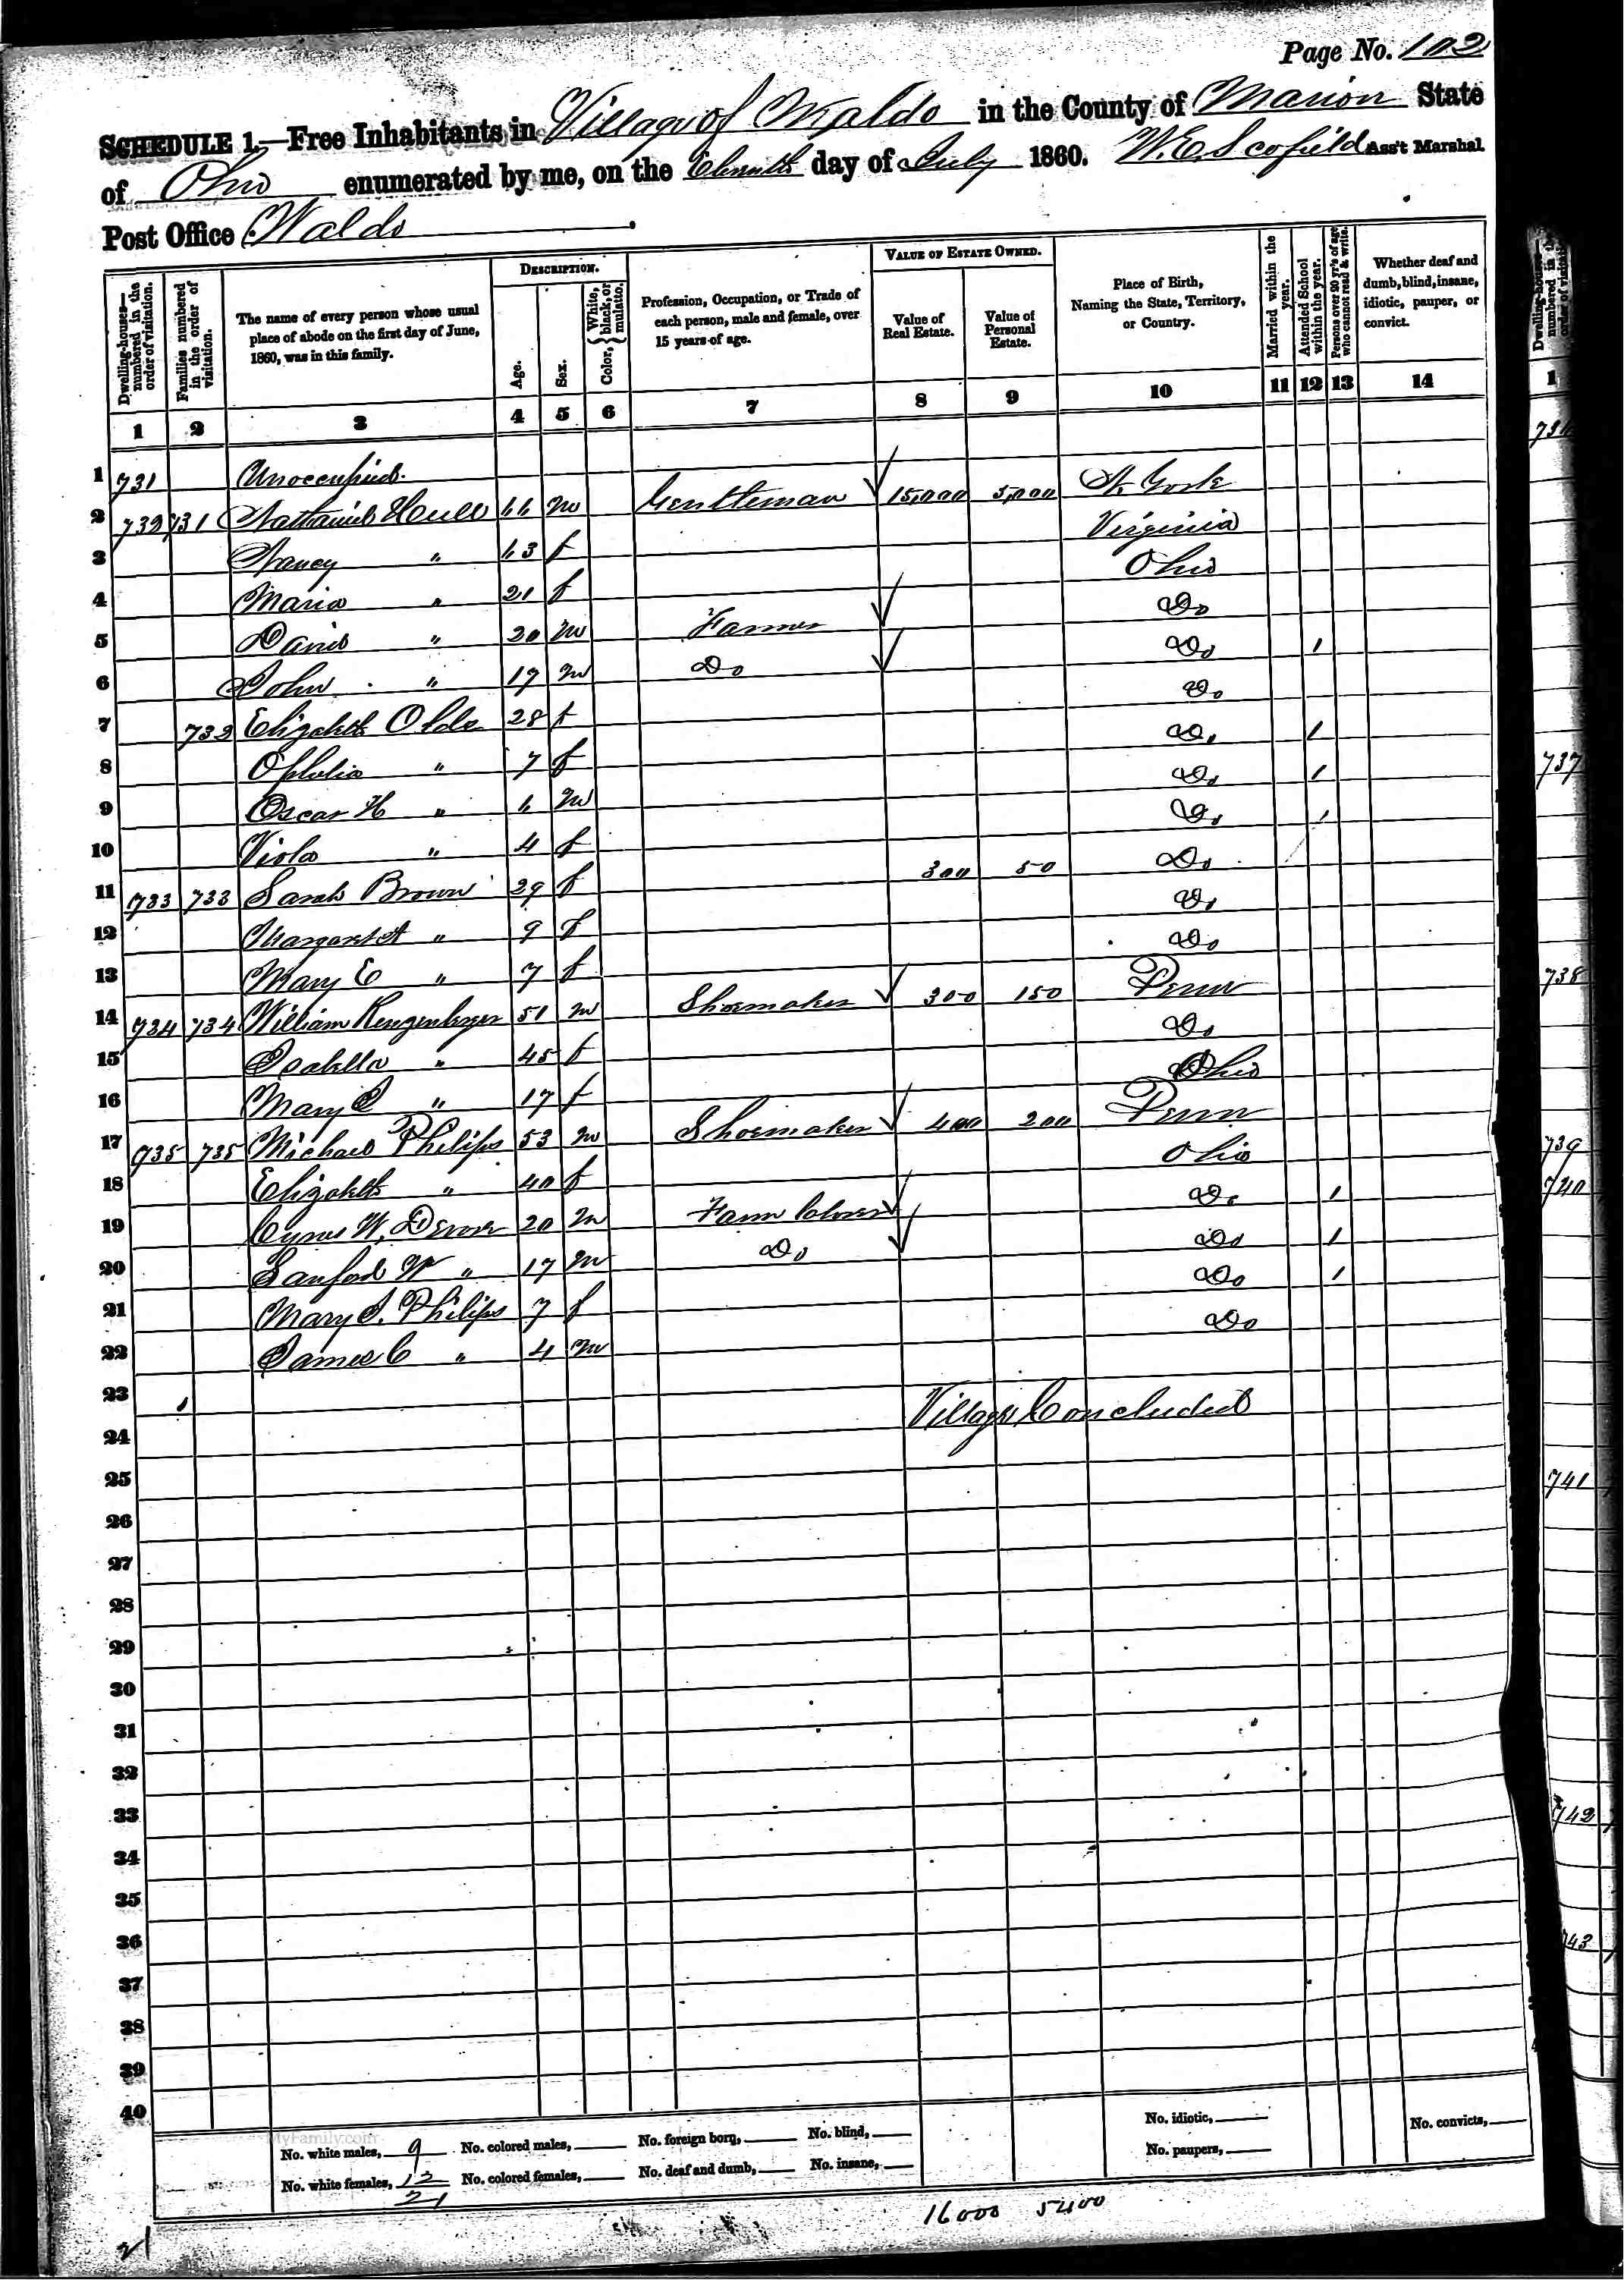 Page No. 102
SCHEDULE 1.—Free Inhabitants in Village of Waldo in the County of Marion State
of Ohio enumerated by me, on the Elventh day of July 1860. W. E. Scofield Ass't Marshal.
Post Office Waldo.
Dwelling-houses—numbered in the order of visitation. Families numbered in the order of visitation. The name of every person whose usual place of abode on the first day of June, 1860, was in this family. DESCRIPTION. Age. Sex. Color, {White, black, or mulatto. Profession, Occupation, or Trade of each person, male and female, over 15 years of age. VALUE OF ESTATE OWNED. Value of Real Estate. Value of Personal Estate. Place of Birth, Naming the State, Territory, or Country. Married within the year. Attended School within the year. Persons over 20 yr's of age who cannot read & write. Whether deaf and dumb, blind, insane, idiotic, pauper, or convict.
1 2 3 4 5 6 7 8 9 10 11 12 13 14
1 731 Unoccupied.
2 732 731 Nathaniel Hull 66 m Gentleman 15,000 5,000 N. York
3 Nancy " 63 f Virginia
4 Maria " 21 f Ohio
5 David " 20 m Farmer Do
6 John " 17 m Do Do 1
7 732 Elizabeth Olds 28 f Do
8 Ophelia " 7 f Do 1
9 Oscar H " 6 m Do 1
10 Viola " 4 f Do 1
11 733 733 Sarah Brown 29 f 300 50 Do
12 Margaret A " 9 f Do
13 Mary E " 7 f Do
14 734 734 William 51 m Shoemaker 300 150 Penn
15 Isabella " 45 f Do
16 Mary " 17 f Ohio
17 735 735 Michael Philips 53 m Shoemaker 400 200 Penn
18 Elizabeth " 40 f Ohio
19 Cyrus W. 20 m Farm Do 1
20 Sanford W " 17 m Do Do 1
21 Mary Philips 7 f Do 1
22 James C " 4 m Do
23
24 Village Concluded
25
26
27
28
29
30
31
32
33
34
35
36
37
38
39
40
MyFamily.com
No. white males, 9 No. colored males, No. foreign born, No. blind, No. idiotic, No. convicts,
No. white females, 12 No. colored females, No. deaf and dumb, No. insane, No. paupers,
21
16000 5400
21
Dwelling-houses—numbered in the order of visitation
1
737
738
739
740
741
742
743